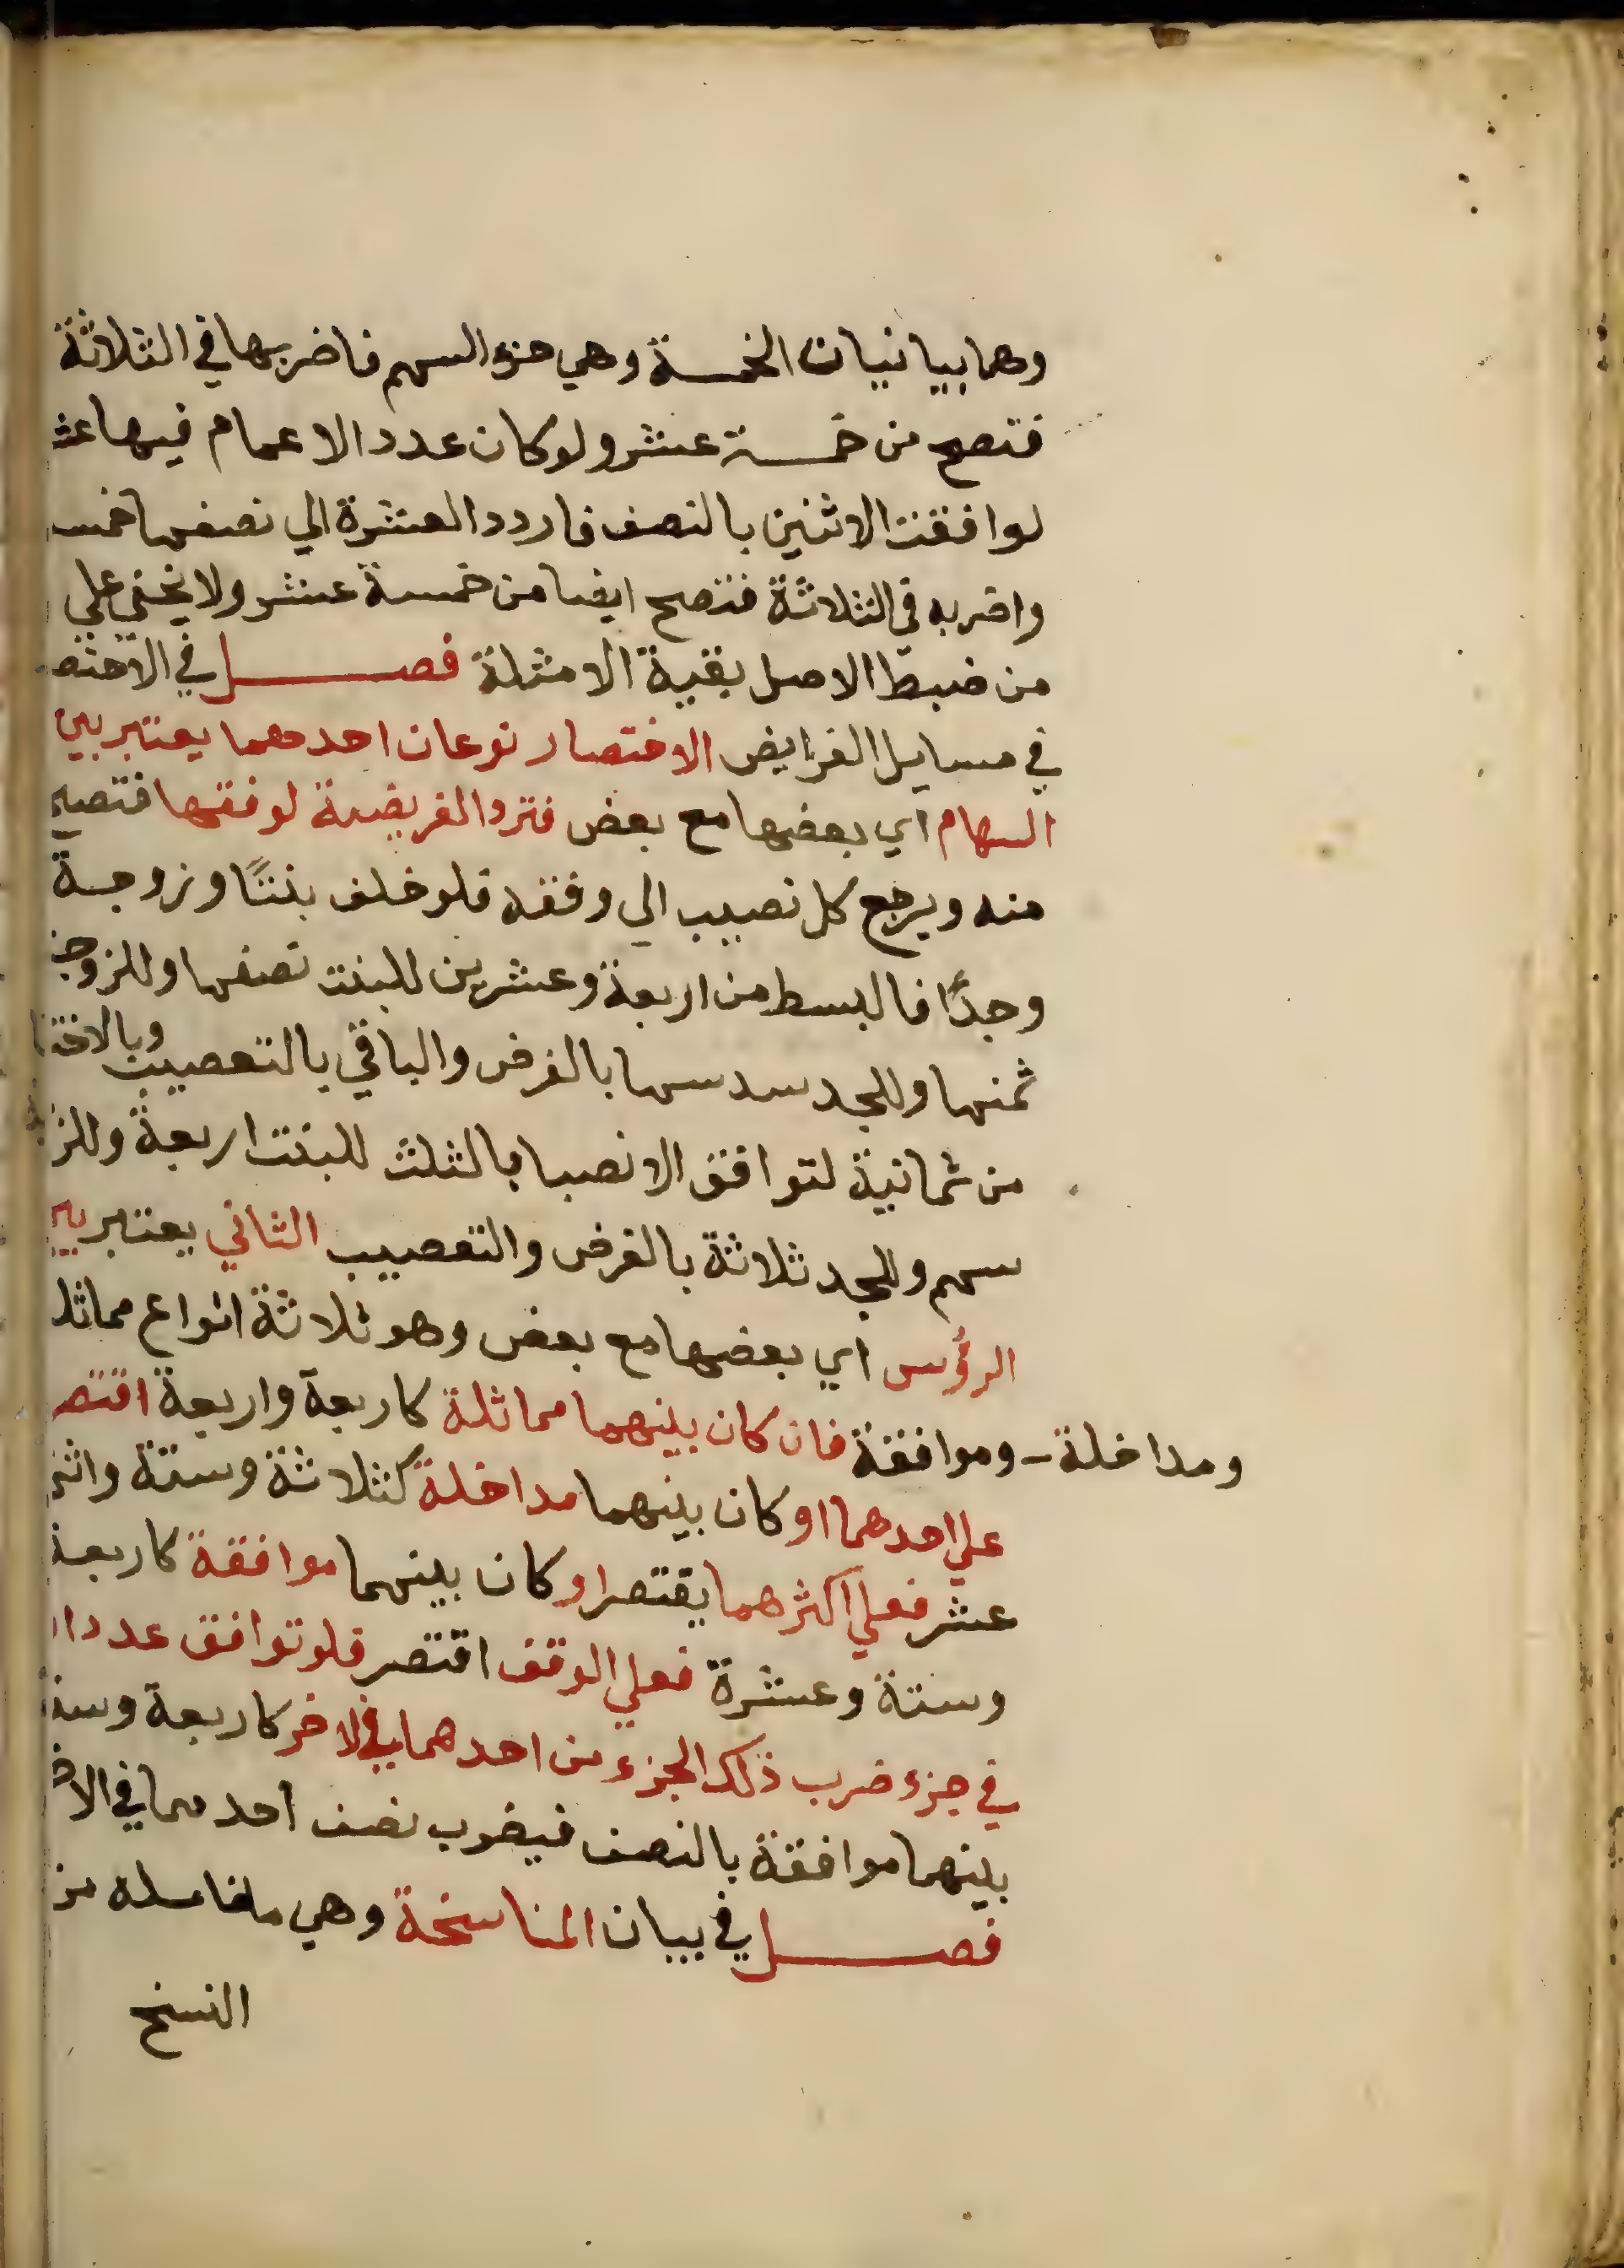 وهما بيانيان الخمسة وهي جزء السهم فاضربها في الثلاثة
فتصح من خمسة عشر ولو كان عدد الاعمام فيها عش
لوافقت الاثنين بالنصف فاردد العشرة الي نصفها خمس
واضربه في الثلاثة فتصح ايضا من خمسة عشر ولا يخفي علي
من ضبط الاصل بقية الامثلة فصل في الاختص
في مسايل الفرايض الاختصار نوعان احدهما يعتبر بين
السهام اي بعضها مع بعض فترد الفريضة لوفقها فتصح
منه ويرجع كل نصيب الي وفقه فلو خلف بنتًا وزوجة
وجدًا فالبسط من اربعة وعشرين للبنت نصفها وللزوجة
ثمنها وللجد سدسها بالفرض والباقي بالتعصيب وبالاختصا
من ثمانية لتوافق الانصبا بالثلث للبنت اربعة وللز
سهم وللجد ثلاثة بالفرض والتعصيب الثاني يعتبر بين
الرؤس اي بعضها مع بعض وهو ثلاثة انواع مماثلة
ومداخلة - وموافقة فان كان بينهما مماثلة كاربعة واربعة اقتصر
علي احدهما او كان بينهما مداخلة كثلاثة وستة واثني
عشر فعلي اكثرهما يقتصر او كان بينهما موافقة كاربعة
وستة وعشرة فعلي الوقف اقتصر فلو توافق عددا
في جزء ضرب ذلك الجزء من احدهما في الاخر كاربعة وستة
بينهما موافقة بالنصف فيضرب نصف احدهما في الاخ
فصل في بيان المناسخة وهي مفاعله من
النسخ